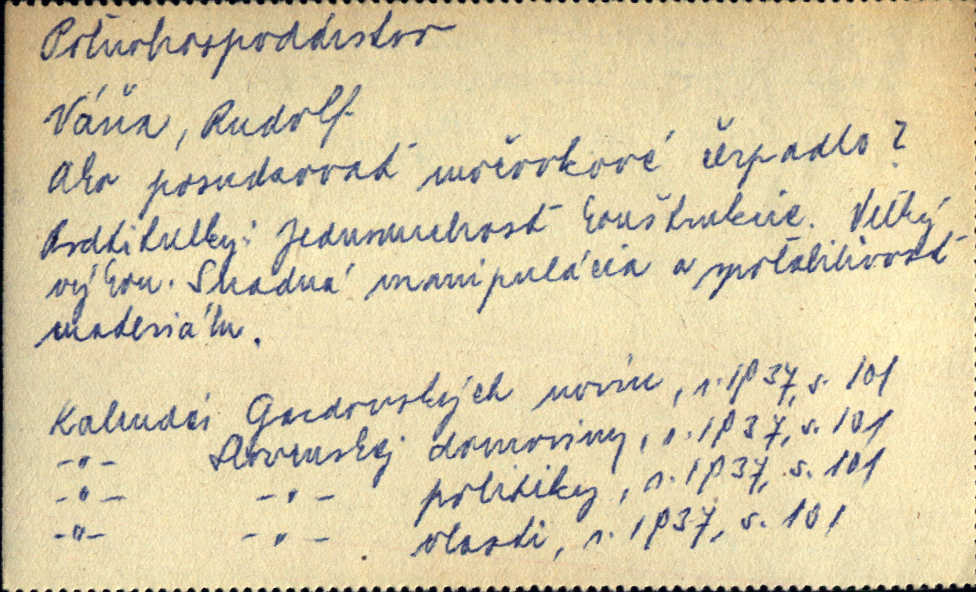 Poľnohospodárstvo
Váňa, Rudolf
Ako posudzovať močovkové čerpadlo?
Podtitulky: Jednoduchosť konštrukcie. Veľký
výkon. Snadná manipulácia a spoľahlivosť
materiálu.
Kalendár Gazdovských novín, r. 1937, s. 101
-"- Slovenskej domoviny, r. 1937, s. 101
-"- -"- politiky, r. 1937, s. 101
-"- -"- vlasti, r. 1937, s. 101